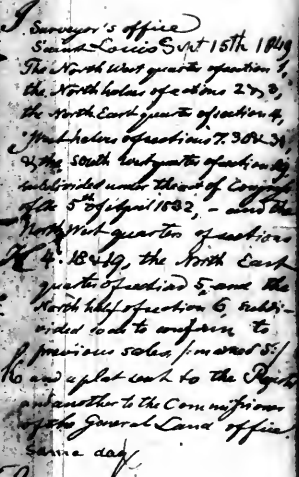 Surveyor's office
Saint Louis Sept 15th 1849
The North West quarter of section 1,
the North halves of sections 2 & 3,
the North East quarter of section 4,
West halves of sections 7. 30 & 31
& the South west quarter of section
subdivided under the act of Congress
of the 5th of April 1832, - and the
North West quarters of sections
4. 18 & 19, the North East
quarter of section 5, and the
North half of section 6, subdi-
vided so as to conform to
previous sales /: marked S:/
and a plat sent to the
and another to the Commissioner
of the General Land office
same day